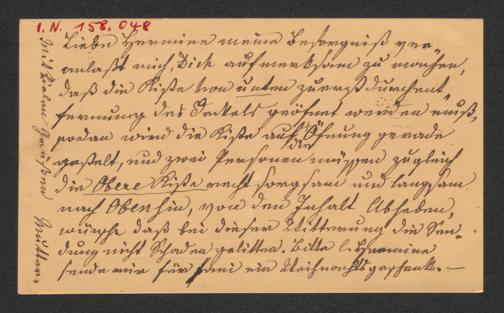 I.N. 158.048
Liebe Hermine meine Besorgniß ver-
anlaßt mich, Dich aufmerksam zu machen,
daß die Kiste von unten zuerst durch ent
fernung des Deckels geöfnet werden muß,
sodan wird die Kiste auf die Öfnung gerade
gestelt, und zwei Personen müssen zugleich
die Obere Kiste recht sorgsam und langsam
nach Oben hin, von den Inhalt Abheben,
wünsche daß bei dieser Witterung die Sen-
dung nicht Schaden gelitten. Bitte l. Hermine
sende mir für Fani ein Weihnachtsgeschenk. —
Mit Vielen Grüßen Mutter.